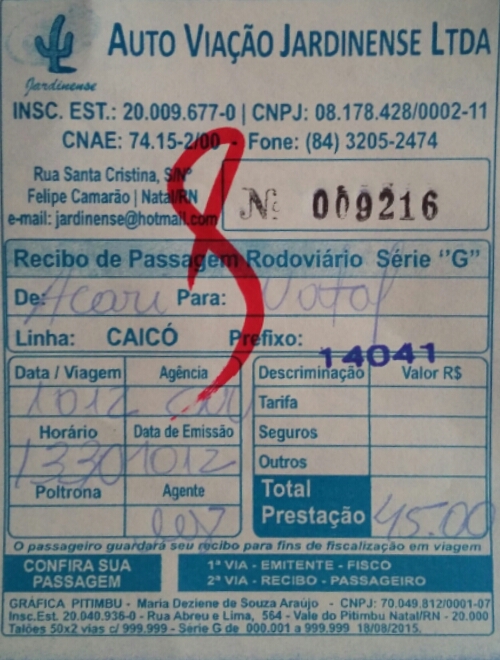 Jardinense
AUTO VIAÇÃO JARDINENSE LTDA
INSC. EST.: 20.009.677-0 | CNPJ: 08.178.428/0002-11
CNAE: 74.15-2/00 - Fone: (84) 3205-2474
Rua Santa Cristina, S/Nº
Felipe Camarão | Natal/RN
e-mail: jardinense@hotmail.com
Nº 009216
8
Recibo de Passagem Rodoviário Série "G"
De: Acari Para: Natal
Linha: CAICÓ Prefixo: 14041
Data / Viagem Agência
1012
Horário Data de Emissão
1330 1012
Poltrona Agente
Descriminação Valor R$
Tarifa
Seguros
Outros
Total
Prestação 45.00
O passageiro guardará seu recibo para fins de fiscalização em viagem
CONFIRA SUA
PASSAGEM
1ª VIA - EMITENTE - FISCO
2ª VIA - RECIBO - PASSAGEIRO
GRÁFICA PITIMBU - Maria Deziene de Souza Araújo - CNPJ: 70.049.812/0001-07
Insc.Est. 20.040.936-0 - Rua Abreu e Lima, 564 - Vale do Pitimbu Natal/RN - 20
Talões 50x2 vias c/ 999.999 - Série G de 000.001 a 999.999 18/08/2015.